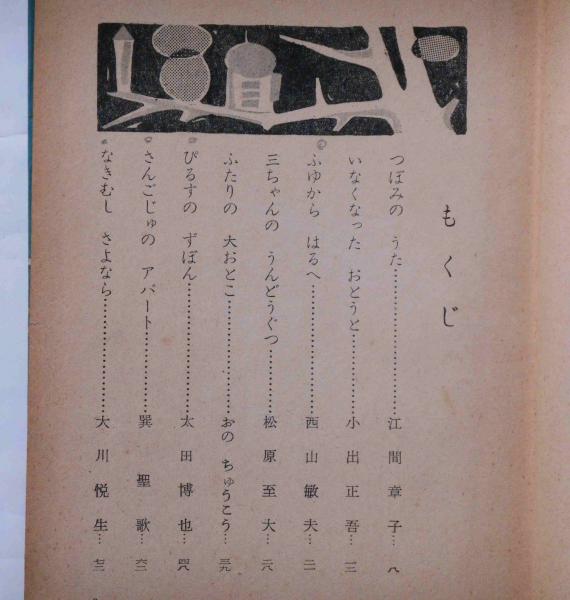 もくじ
つぼみの うた……………………江間章子… 八
いなくなった おとうと…………小出正吾… 一三
ふゆから はるへ…………………西山敏夫… 二一
三ちゃんの うんどうぐつ………松原至大… 二八
ふたりの 大おとこ………………おの ちゅうこう… 三九
ぴるすの ずぼん…………………太田博也… 四八
さんごじゅの アパート…………巽聖歌… 六二
なきむし さよなら………………大川悦生… 七三